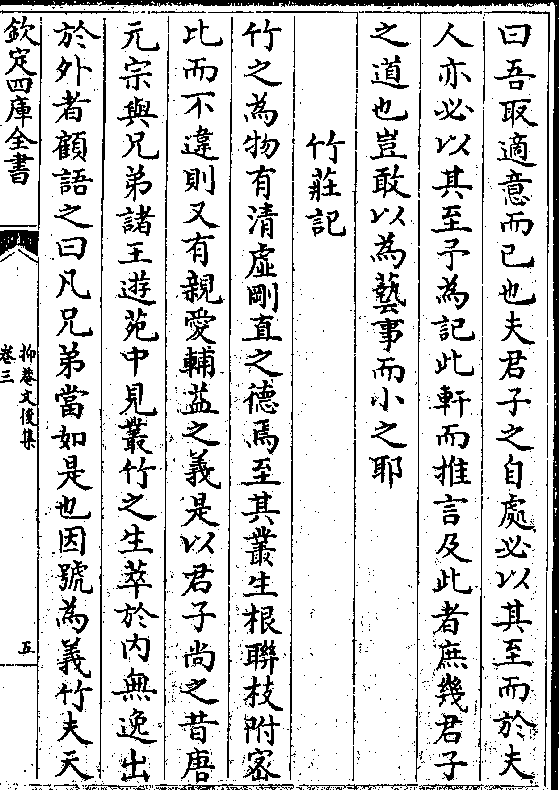 曰吾取適意而已也夫君子之自處必以其至而於夫
人亦必以其至予為記此軒而推言及此者庶幾君子
之道也豈敢以為藝事而小之耶
竹莊記
竹之為物有清虛剛直之德焉至其叢生根聯枝附宻
比而不違則又有親愛輔益之義是以君子尚之昔唐
元宗與兄弟諸王遊苑中見叢竹之生萃於内無逸出
於外者顧語之曰凡兄弟當如是也因號為義竹夫天
欽定四庫全書
抑菴文後集
卷三
五